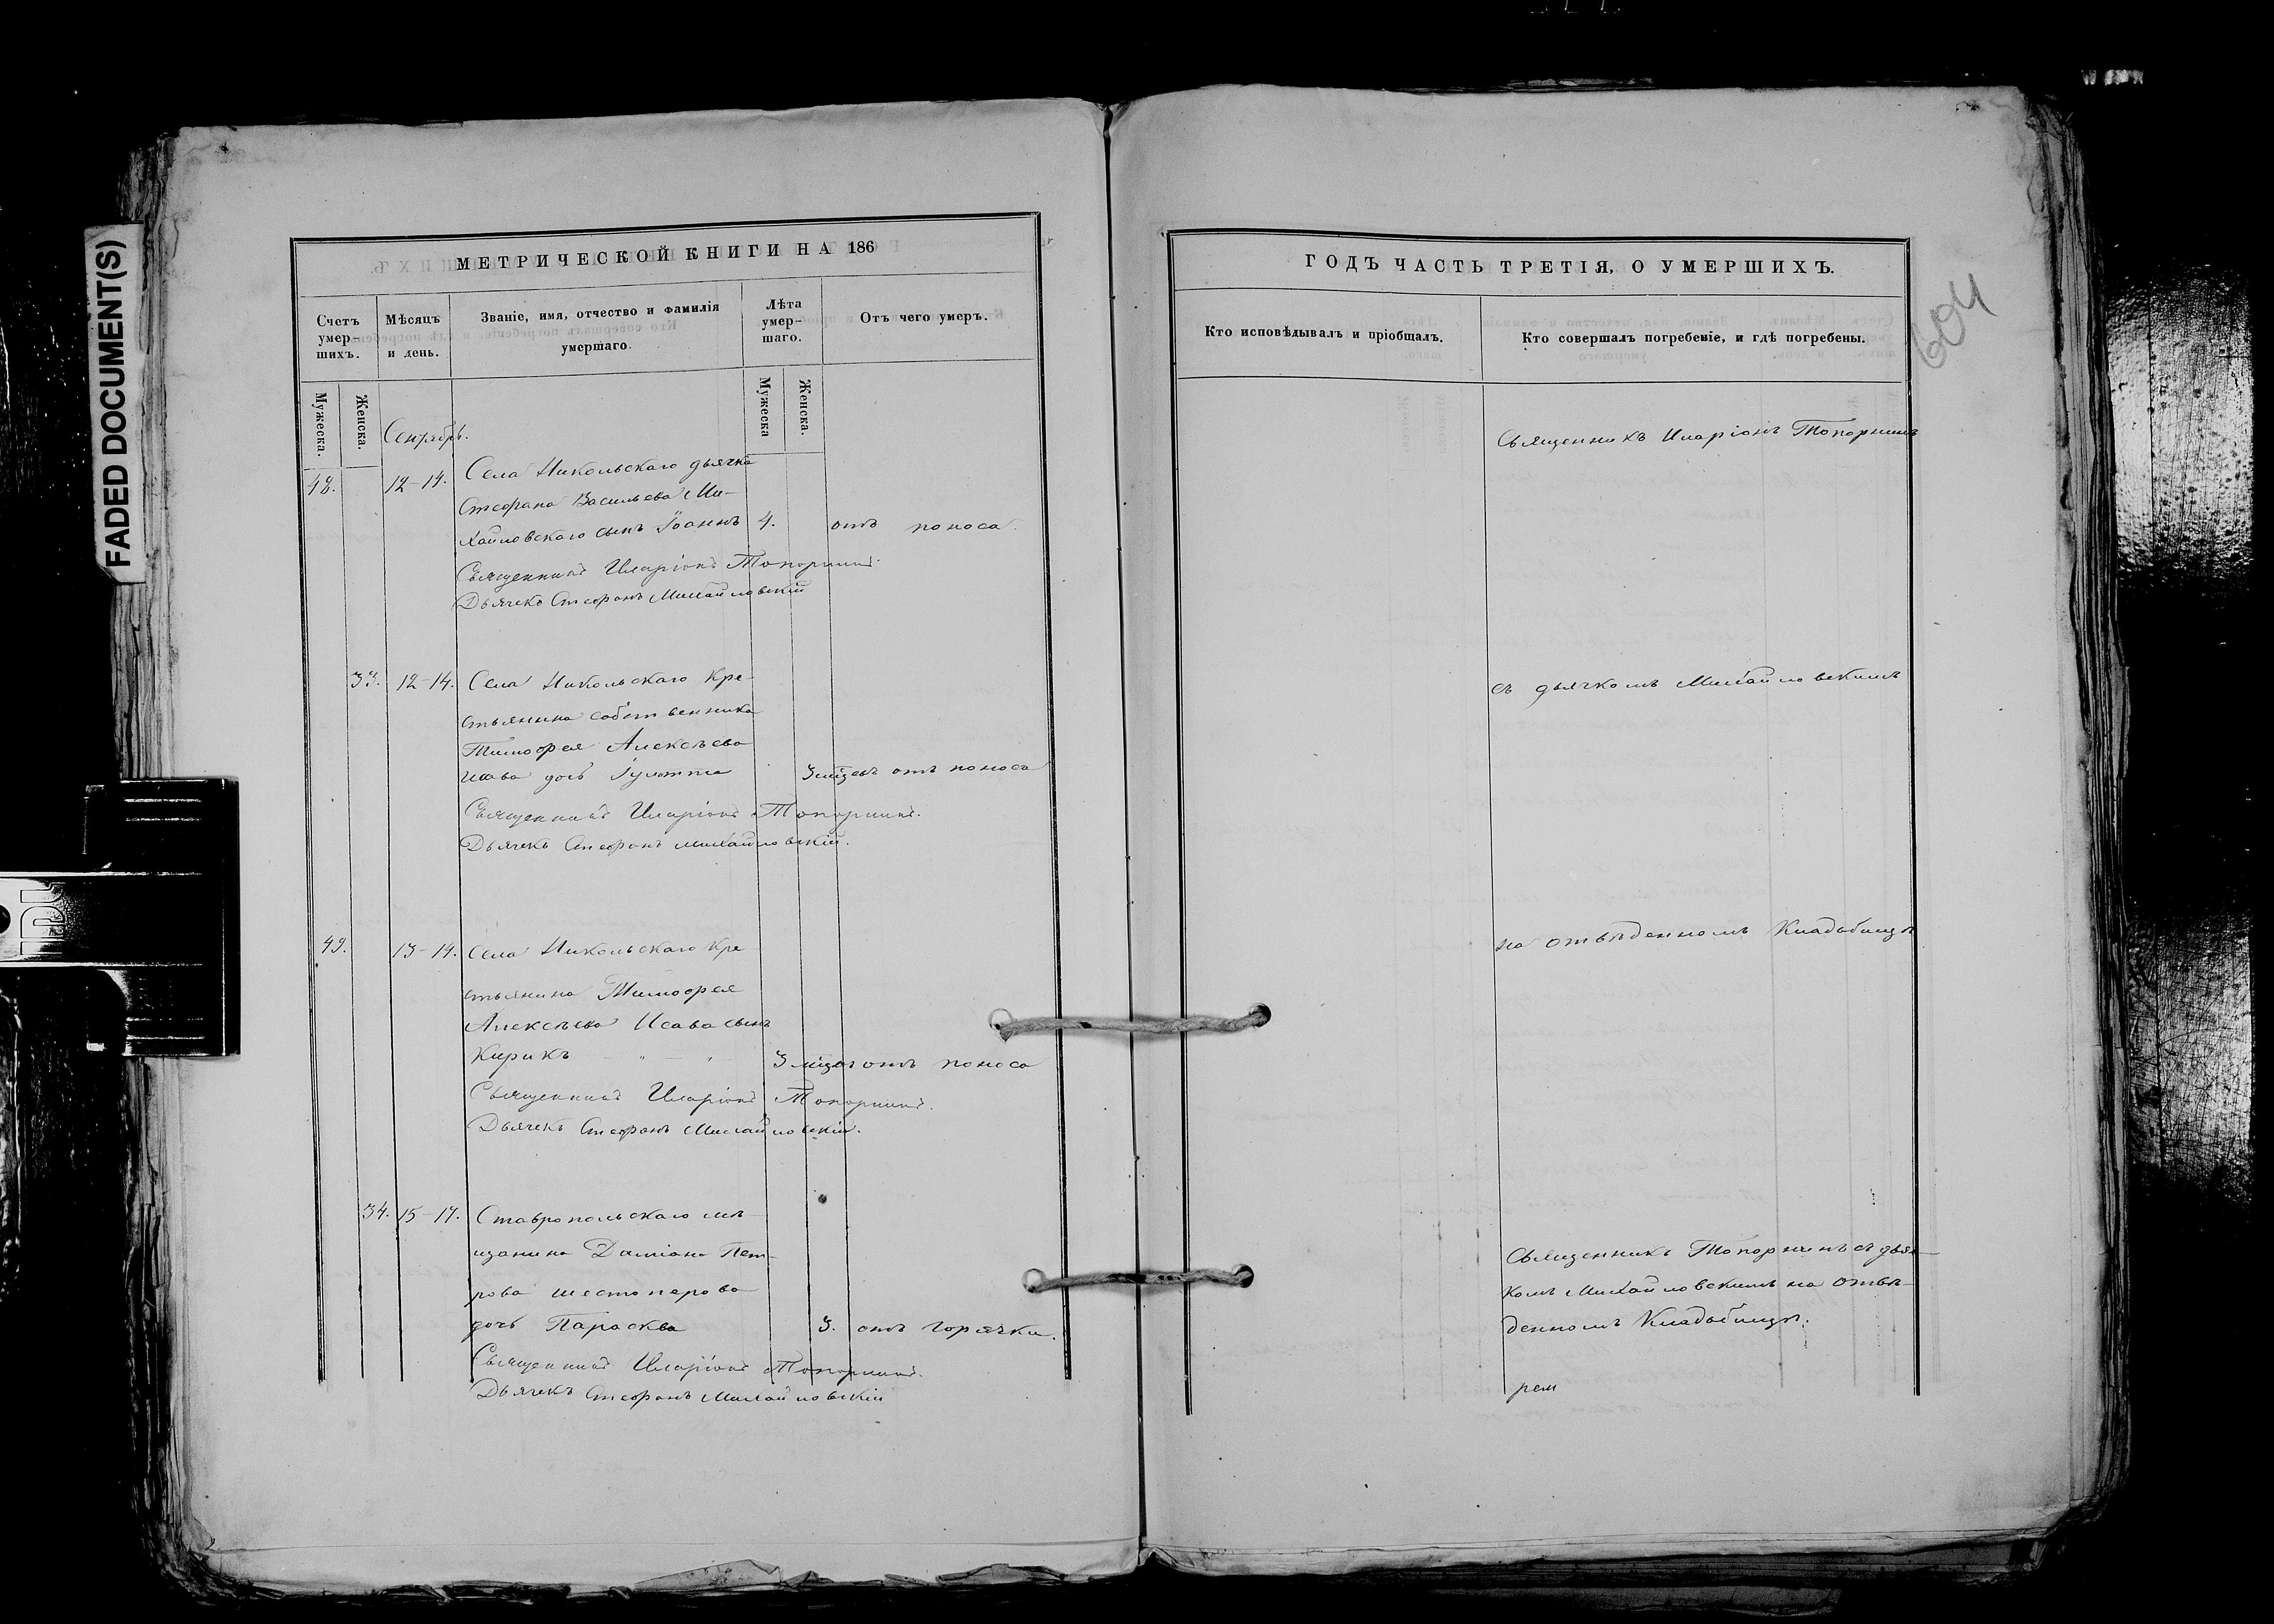 FADED DOCUMENT(S)
МЕТРИЧЕСКОЙ КНИГИ НА 186
Счетъ умер-шихъ.
Мѣсяцъ и день.
Званіе, имя, отчество и фамилія умершаго.
Лѣта умер-шаго.
Отъ чего умеръ.
Мужеска.
Женска.
Мужеска
Женска.
Сентябрь.
48. 12-14. Села Никольскаго дьячка
Стефана Васильева Ми-
хайловскаго сынъ Іоаннъ 4. отъ поноса.
Священникъ Иларіонъ Топорнинъ.
Дьячекъ Стефанъ Михайловскій
33. 12-14. Села Никольскаго Кре-
стьянина собственника
Тимофея Алексѣева
Исава дочь Іулитта 3 мѣзъ отъ поноса
Священникъ Иларіонъ Топорнинъ.
Дьячекъ Стефанъ Михайловскій.
49. 13-14. Села Никольскаго Кре
стьянина Тимофея
Алексѣева Исава сынъ
Кирикъ 3 мѣз отъ поноса
Священникъ Иларіонъ Топорнинъ.
Дьячекъ Стефанъ Михайловскій.
34. 15-17. Ставропольскаго мѣ-
щанина Даміана Пет-
рова Шестоперова
дочь Парасква 3. отъ горячки.
Священникъ Иларіонъ Топорнинъ.
Дьячекъ Стефанъ Михайловскій
ГОДЪ ЧАСТЬ ТРЕТІЯ, О УМЕРШИХЪ.
604
Кто исповѣдывалъ и пріобщалъ.
Кто совершалъ погребеніе, и гдѣ погребены.
Священникъ Иларіонъ Топорнинъ
съ дьячкомъ Михайловскимъ
на отвѣденномъ Кладбищѣ
Священникъ Топорнинъ съ дьяч-
комъ Михайловскимъ на отвѣ-
денномъ Кладбищѣ.